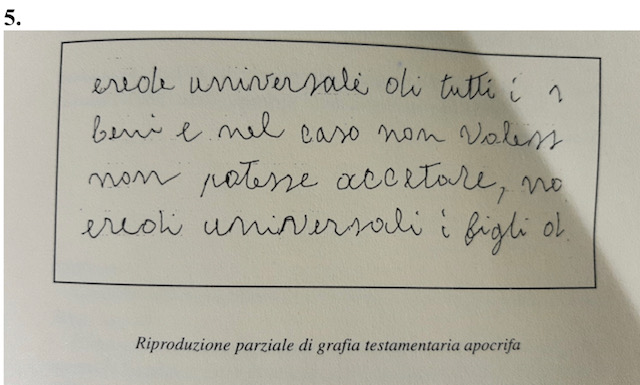 5.
erede universale di tutti i
beni e nel caso non voless
non potesse accettare, no
eredi universali i figli d
Riproduzione parziale di grafia testamentaria apocrifa